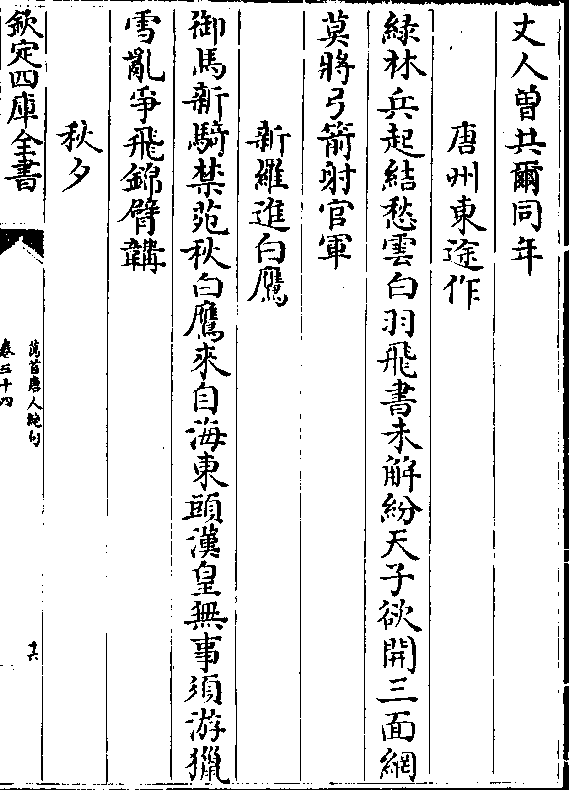 丈人曾共爾同年
唐州東途作
緑林兵起結愁雲白羽飛書未解紛天子欲開三面網
莫將弓箭射官軍
新羅進白鷹
御馬新騎禁苑秋白鷹來自海東頭漢皇無事須游獵
雪亂爭飛錦臂韝
秋夕
欽定四庫全書
萬首唐人絶句
卷三十四
十六